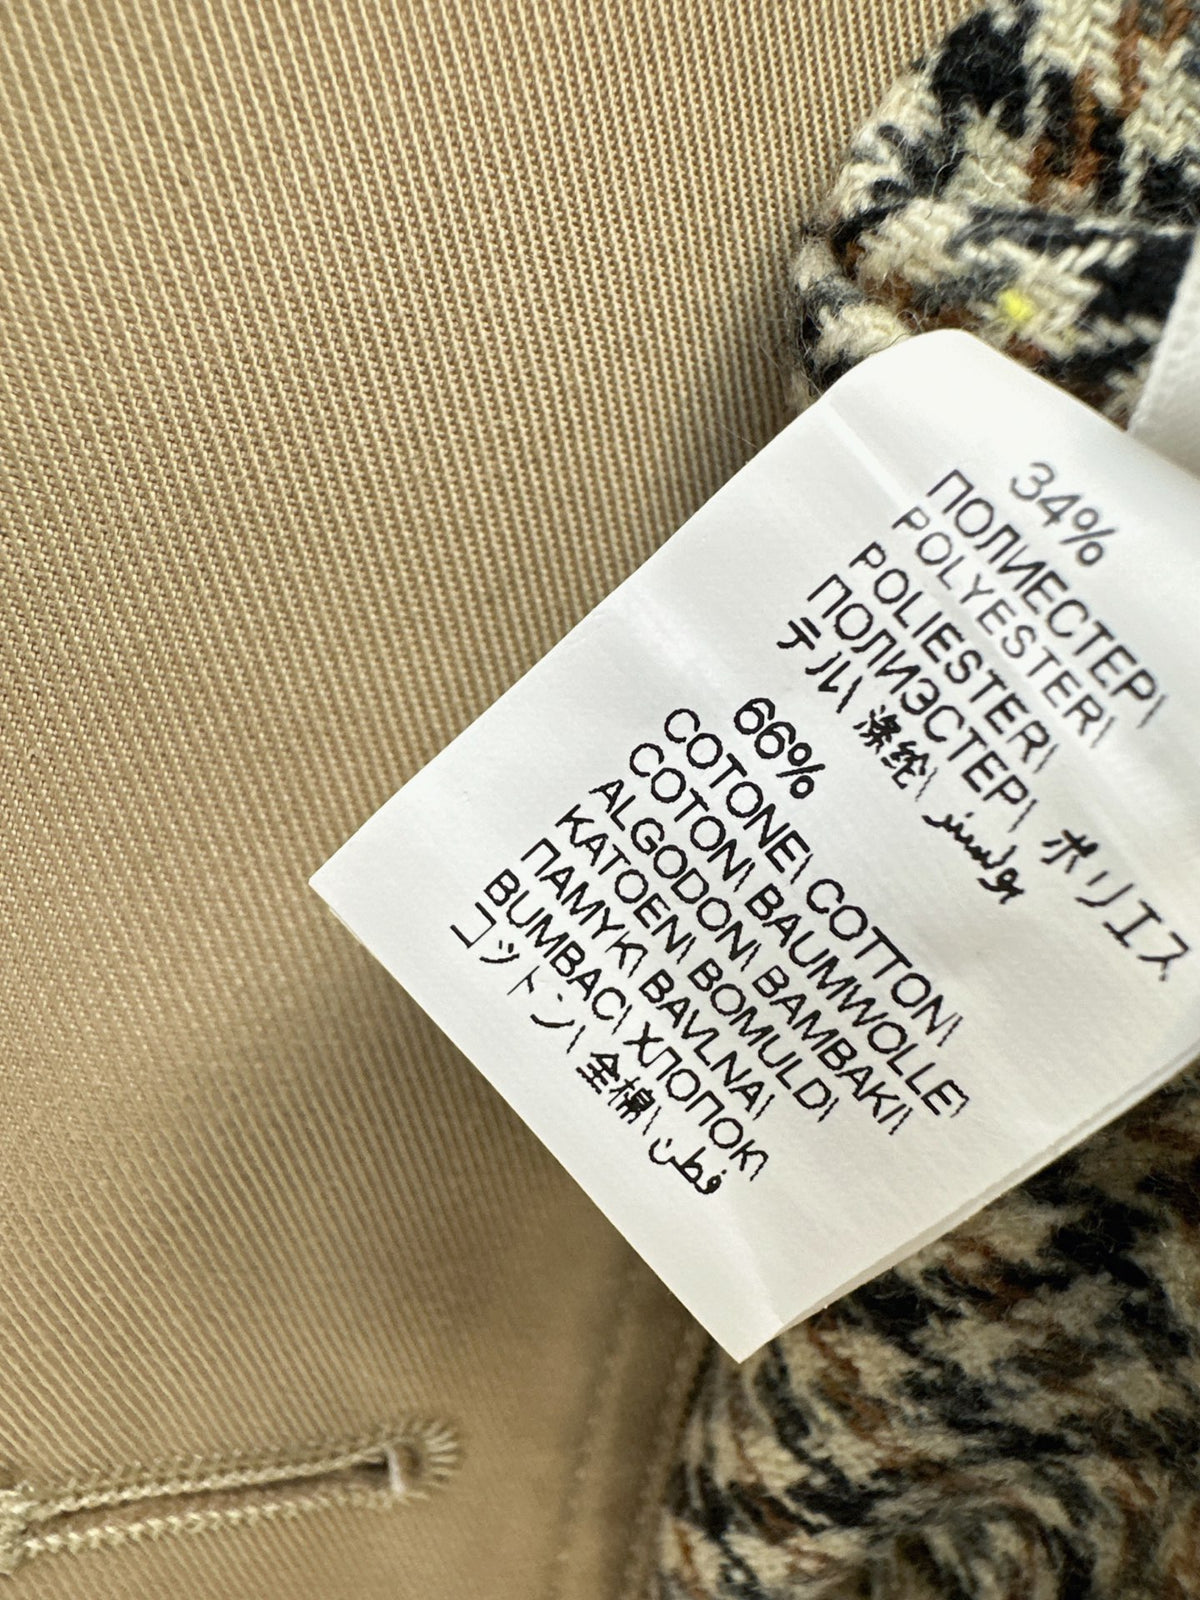 34%
ПОЛИЕСТЕР\
POLYESTER\
POLIESTER\
ПОЛИЭСТЕР\ ポリエス
テル\ 涤纶\ بولستر
66%
COTONE\ COTTON\
COTON\ BAUMWOLLE\
ALGODON\ BAMBAKI\
KATOEN\ BOMULD\
ПАМУК\ BAVLNA\
BUMBAC\ ХЛОПОК\
コットン\ 全棉\ قطن